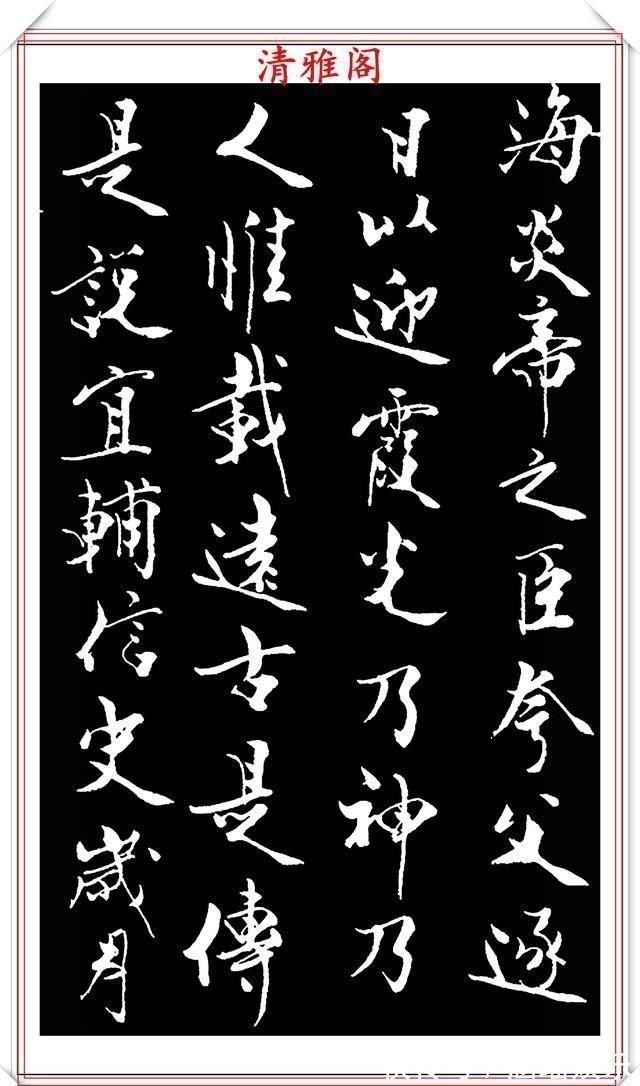 清雅阁
海炎帝之臣夸父逐
日以迎霞光乃神乃
人惟載遠古是傳
是說宜輔信史歲月